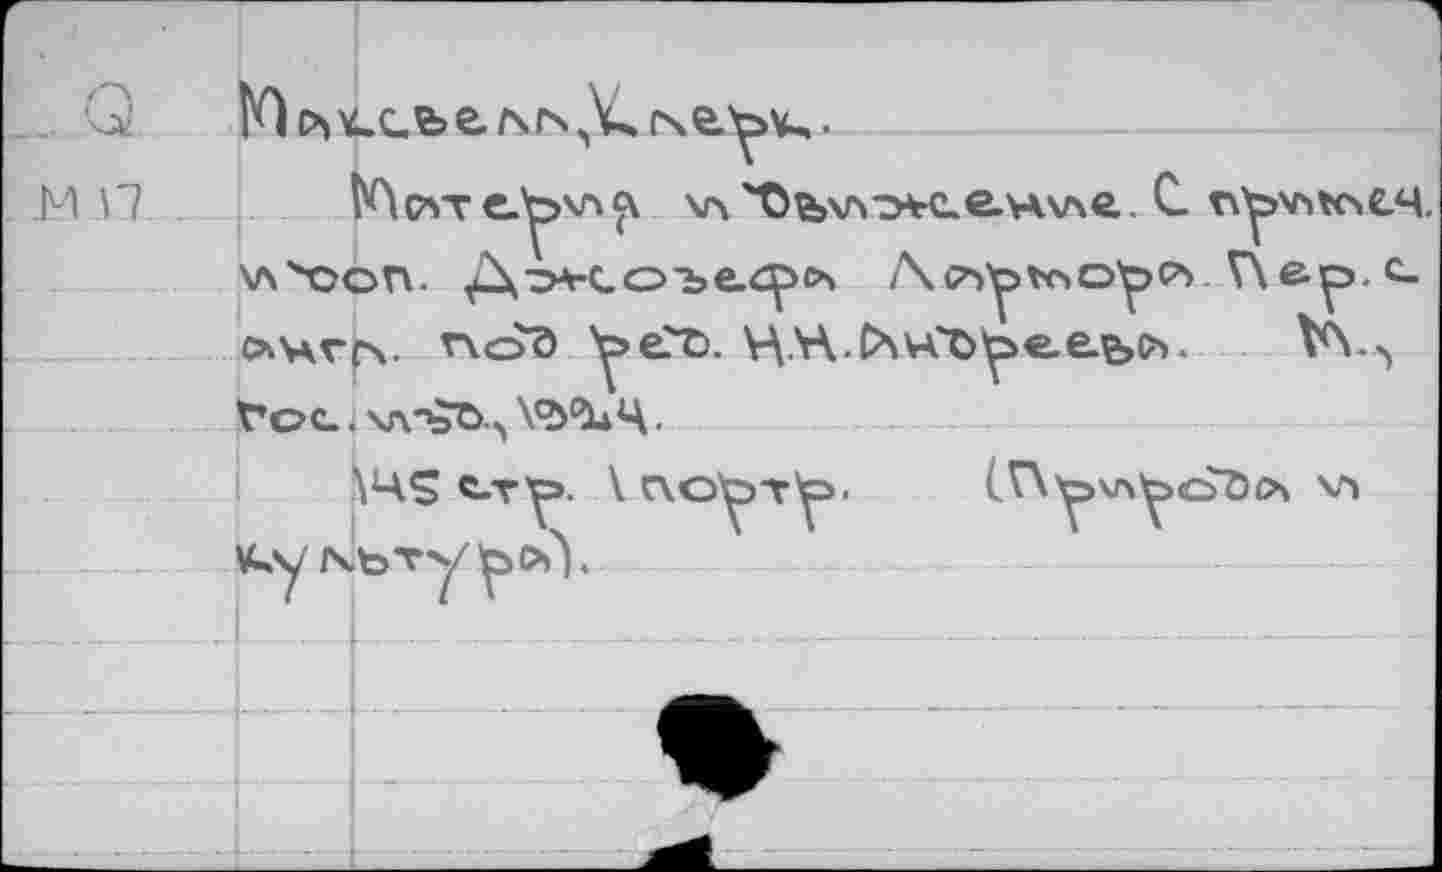 Q Максвелл, Клерк.
М 17 Материя и движение. С примеч.
и доп. Джозефа Лармора. Пер. с
англ. под ред. Н.Н. Андреева. М.,
Гос. изд., 1924.
145 стр. 1 портр. (Природа и
культура).